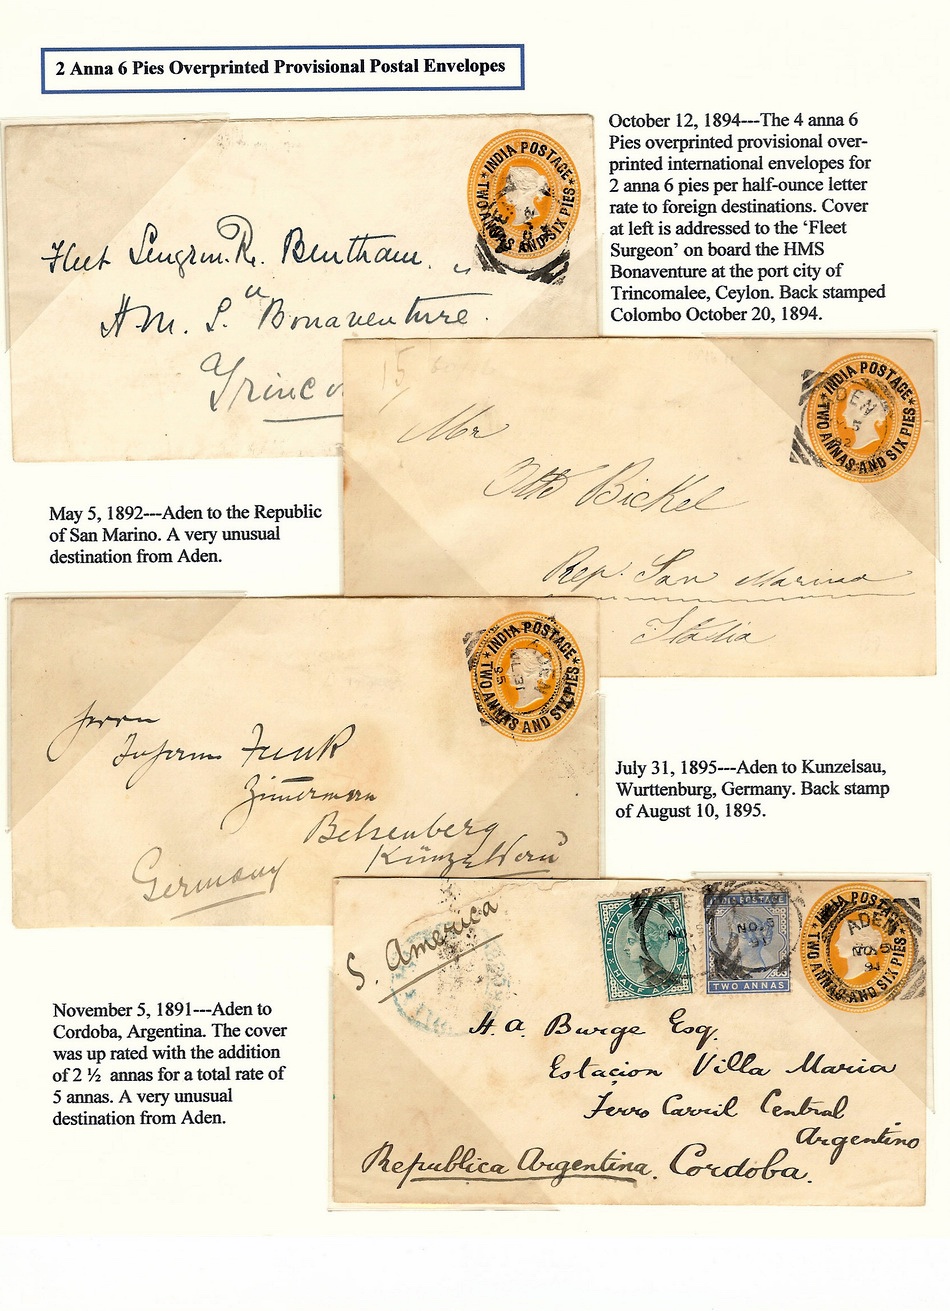 2 Anna 6 Pies Overprinted Provisional Postal Envelopes
October 12, 1894---The 4 anna 6
Pies overprinted provisional over-
printed international envelopes for
2 anna 6 pies per half-ounce letter
rate to foreign destinations. Cover
at left is addressed to the ‘Fleet
Surgeon’ on board the HMS
Bonaventure at the port city of
Trincomalee, Ceylon. Back stamped
Colombo October 20, 1894.
INDIA POSTAGE
TWO ANNAS AND SIX PIES
Fleet Surgeon. R. Bentham.
H.M.S. "Bonaventure.
Trinco
INDIA POSTAGE
TWO ANNAS AND SIX PIES
15
Mr
Otto Bickel
Rep. San Marino
Italia
May 5, 1892---Aden to the Republic
of San Marino. A very unusual
destination from Aden.
INDIA POSTAGE
TWO ANNAS AND SIX PIES
ADEN
JL 31
95
Herrn
Johann Funk
Zimmermann
Belsenberg
Künzelsau
Germany
July 31, 1895---Aden to Kunzelsau,
Wurttenburg, Germany. Back stamp
of August 10, 1895.
November 5, 1891---Aden to
Cordoba, Argentina. The cover
was up rated with the addition
of 2 ½ annas for a total rate of
5 annas. A very unusual
destination from Aden.
S. America
INDIA
HALF ANNA
INDIA POSTAGE
TWO ANNAS
NO. 5
91
INDIA POSTAGE
TWO ANNAS AND SIX PIES
ADEN
NO. 5
91
H. A. Burge Esq.
Estacion Villa Maria
Ferro Carril Central
Argentino
Republica Argentina. Cordoba.